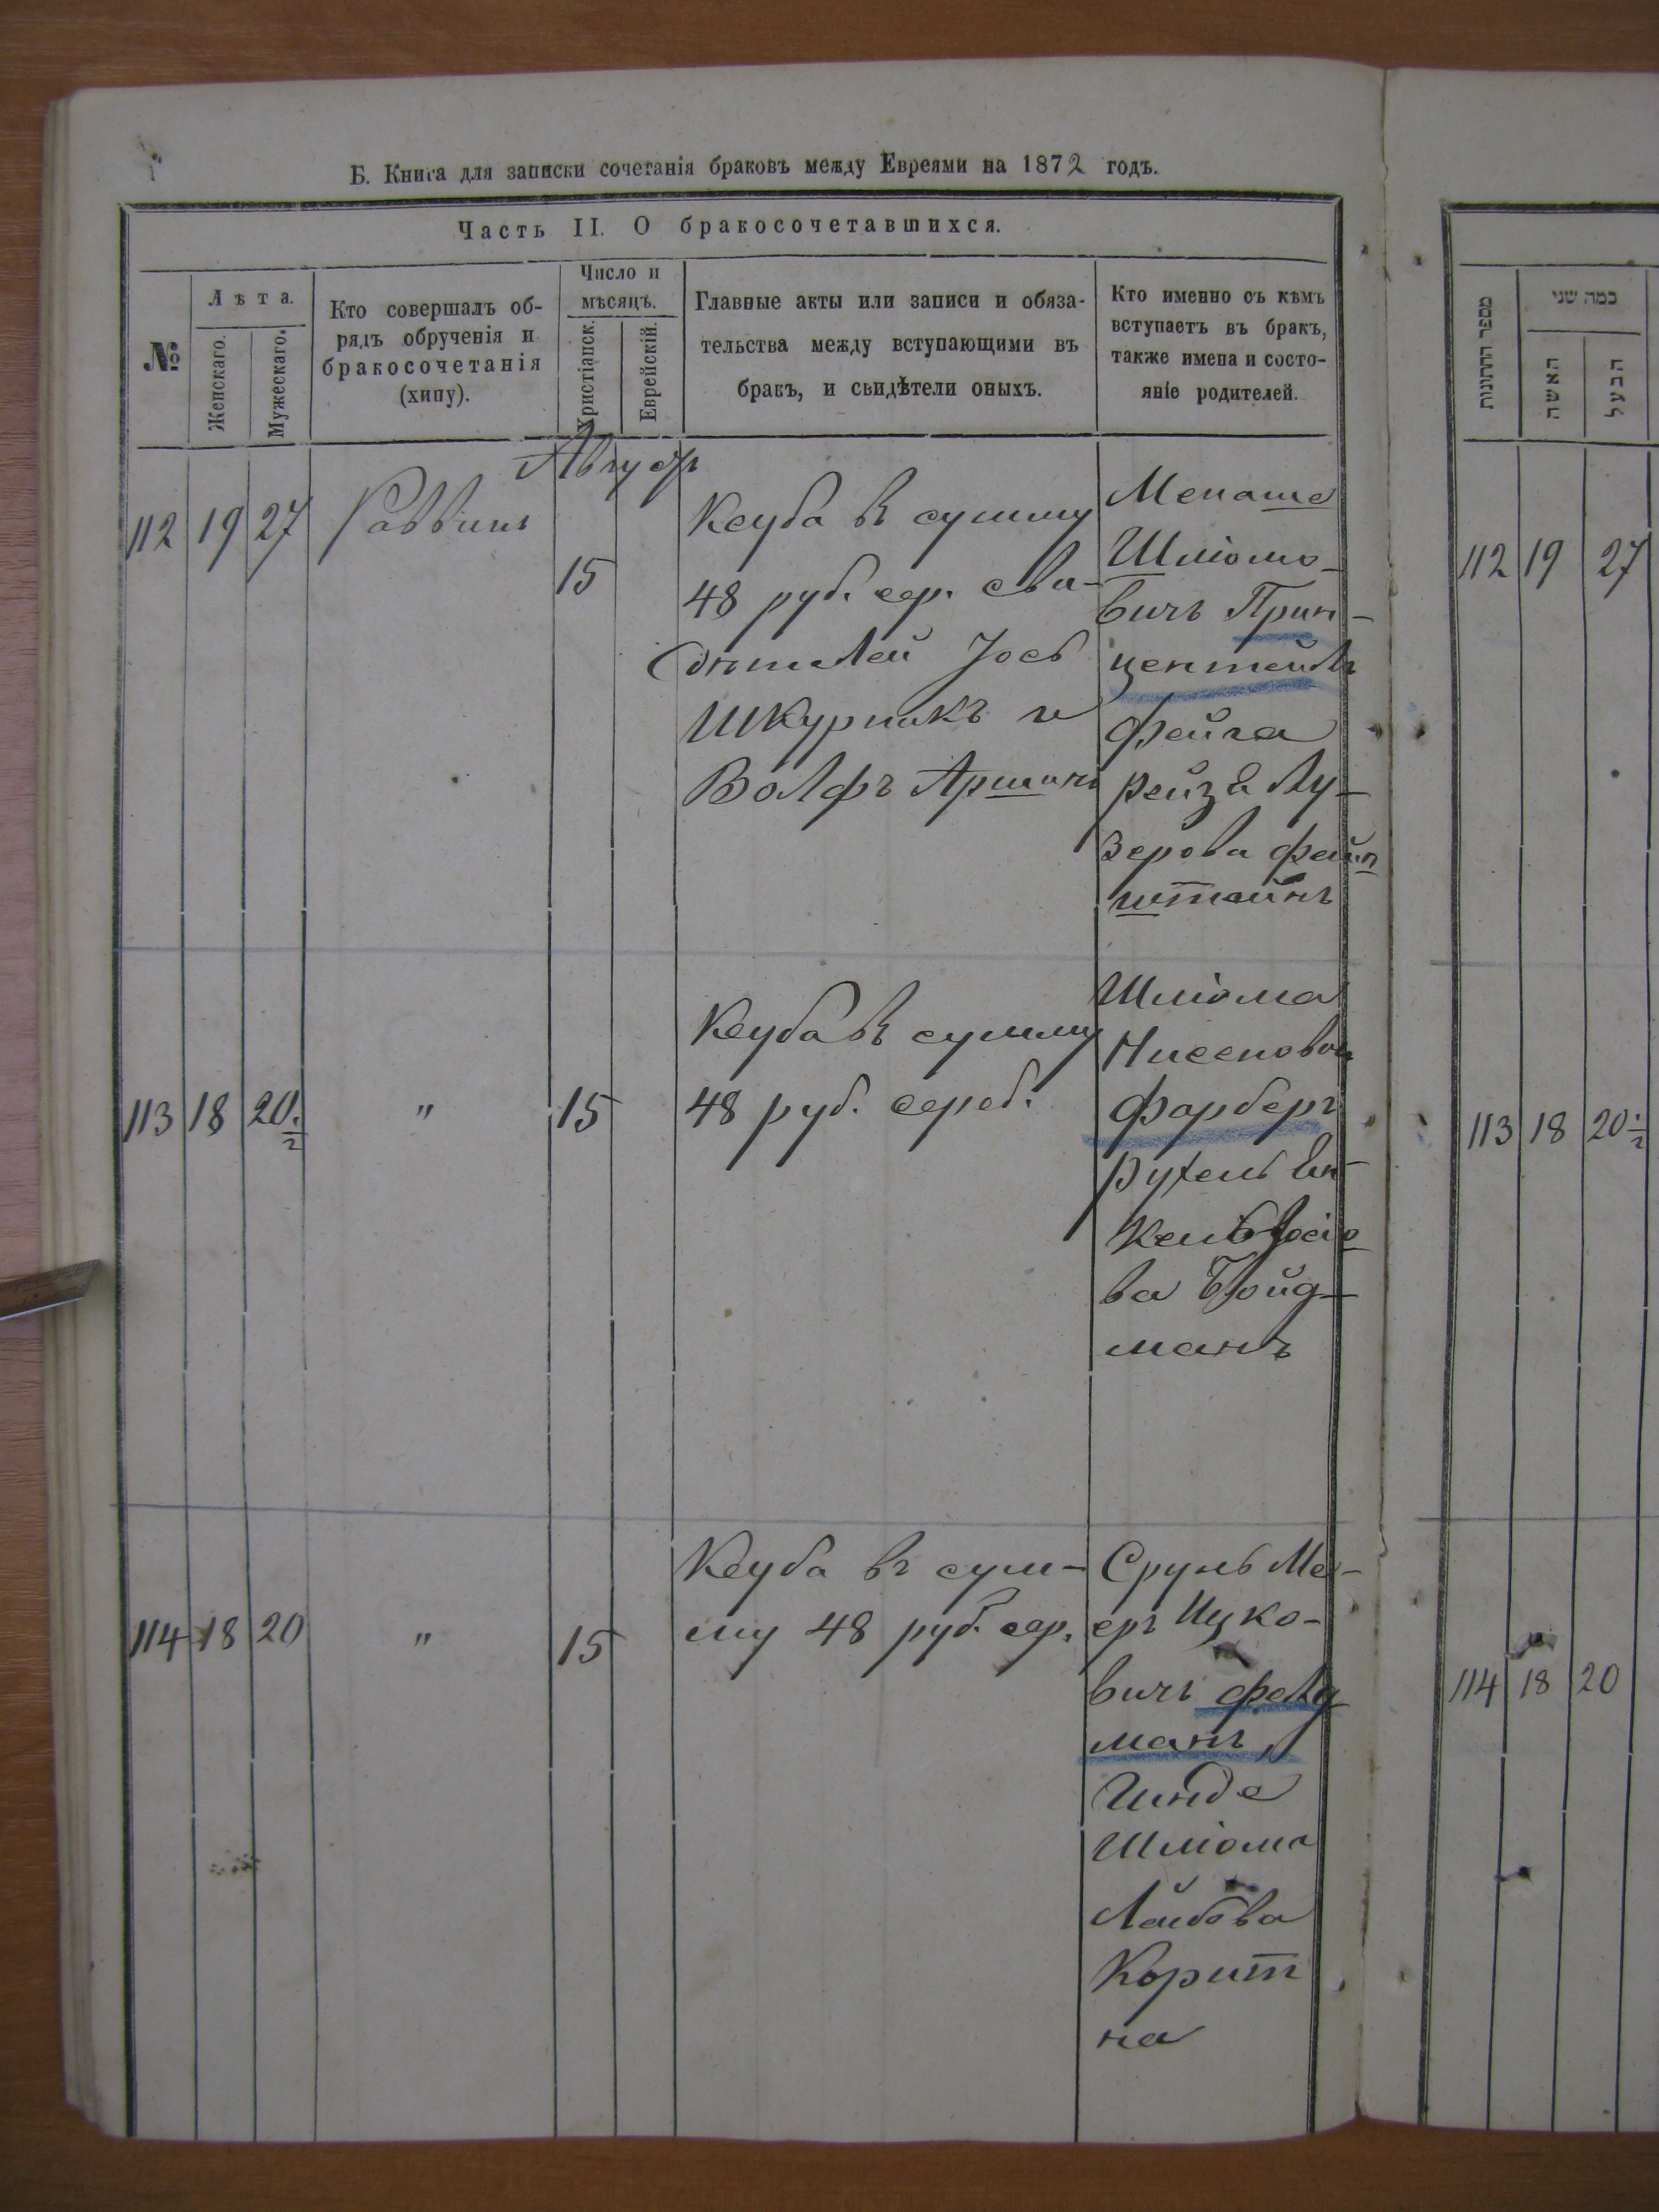 Б. Книга для записки сочетанія браковъ между Евреями на 1872 годъ.
Часть II. О бракосочетавшихся.
№
Лѣта.
Женскаго.
Мужескаго.
Кто совершалъ об-
рядъ обрученія и
бракосочетанія
(хипу).
Число и
мѣсяцъ.
Христіанск.
Еврейскій.
Главные акты или записи и обяза-
тельства между вступающими въ
бракъ, и свидѣтели оныхъ.
Кто именно съ кѣмъ
вступаетъ въ бракъ,
также имена и состо-
яніе родителей.
Августъ
112 19 27 Раввинъ
15
Ксуба въ сумму
48 руб. сер. сви-
дѣтелей Йось
Шкурникъ и
Волфъ Аршинъ
Менаше
Шліомо-
вичъ Прин-
центейлъ
Фейга
Рейза Лу-
зерова Фейн
штейнъ
113 18 20 1/2 " 15
Ксуба въ сумму
48 руб. сереб.
Шліома
Нисеновичъ
Фарберъ
Рухель
ва Бойд-
манъ
114 18 20 " 15
Ксуба въ сум-
му 48 руб. сер.
Сруль Ме-
еръ Ицко-
вичъ Фелд
манъ,
Гинде
Шліома
Лейбова
Корит
на
מספר החתונות
כמה שני
האשה
הבעל
112 19 27
113 18 20 1/2
114 18 20